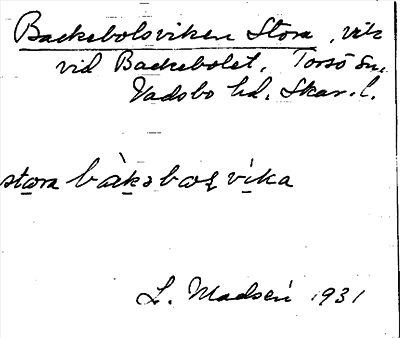 Backebolsviken Stora, vik
vid Backebolet, Torsö sn,
Vadsbo hd. Skar. l.
stora bàkəboɽvika
L. Madsén 1931